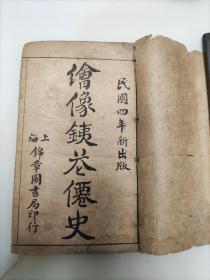 民國四年新出版
繪像鉄花僊史
上海錦章圖書局印行